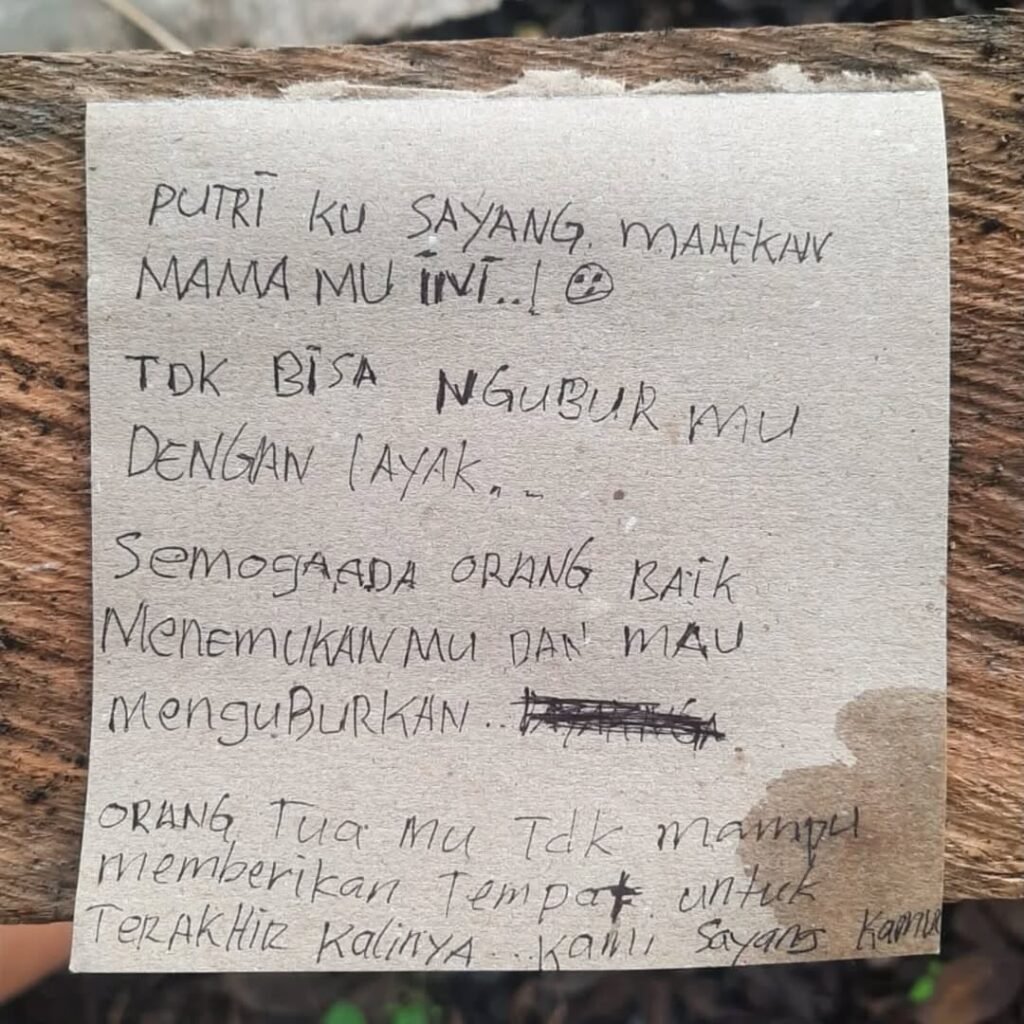 PUTRI KU SAYANG. MAAFKAN
MAMA MU INI..!
TDK BISA NGUBUR MU
DENGAN LAYAK...
SemogaADA ORANG BAIK
MeNEMUKANMU DAN MAU
MenguBURKAN..
ORANG Tua Mu Tdk mampu
memberikan Tempat untuk
TERAKHIR Kalinya...kami Sayang Kamu